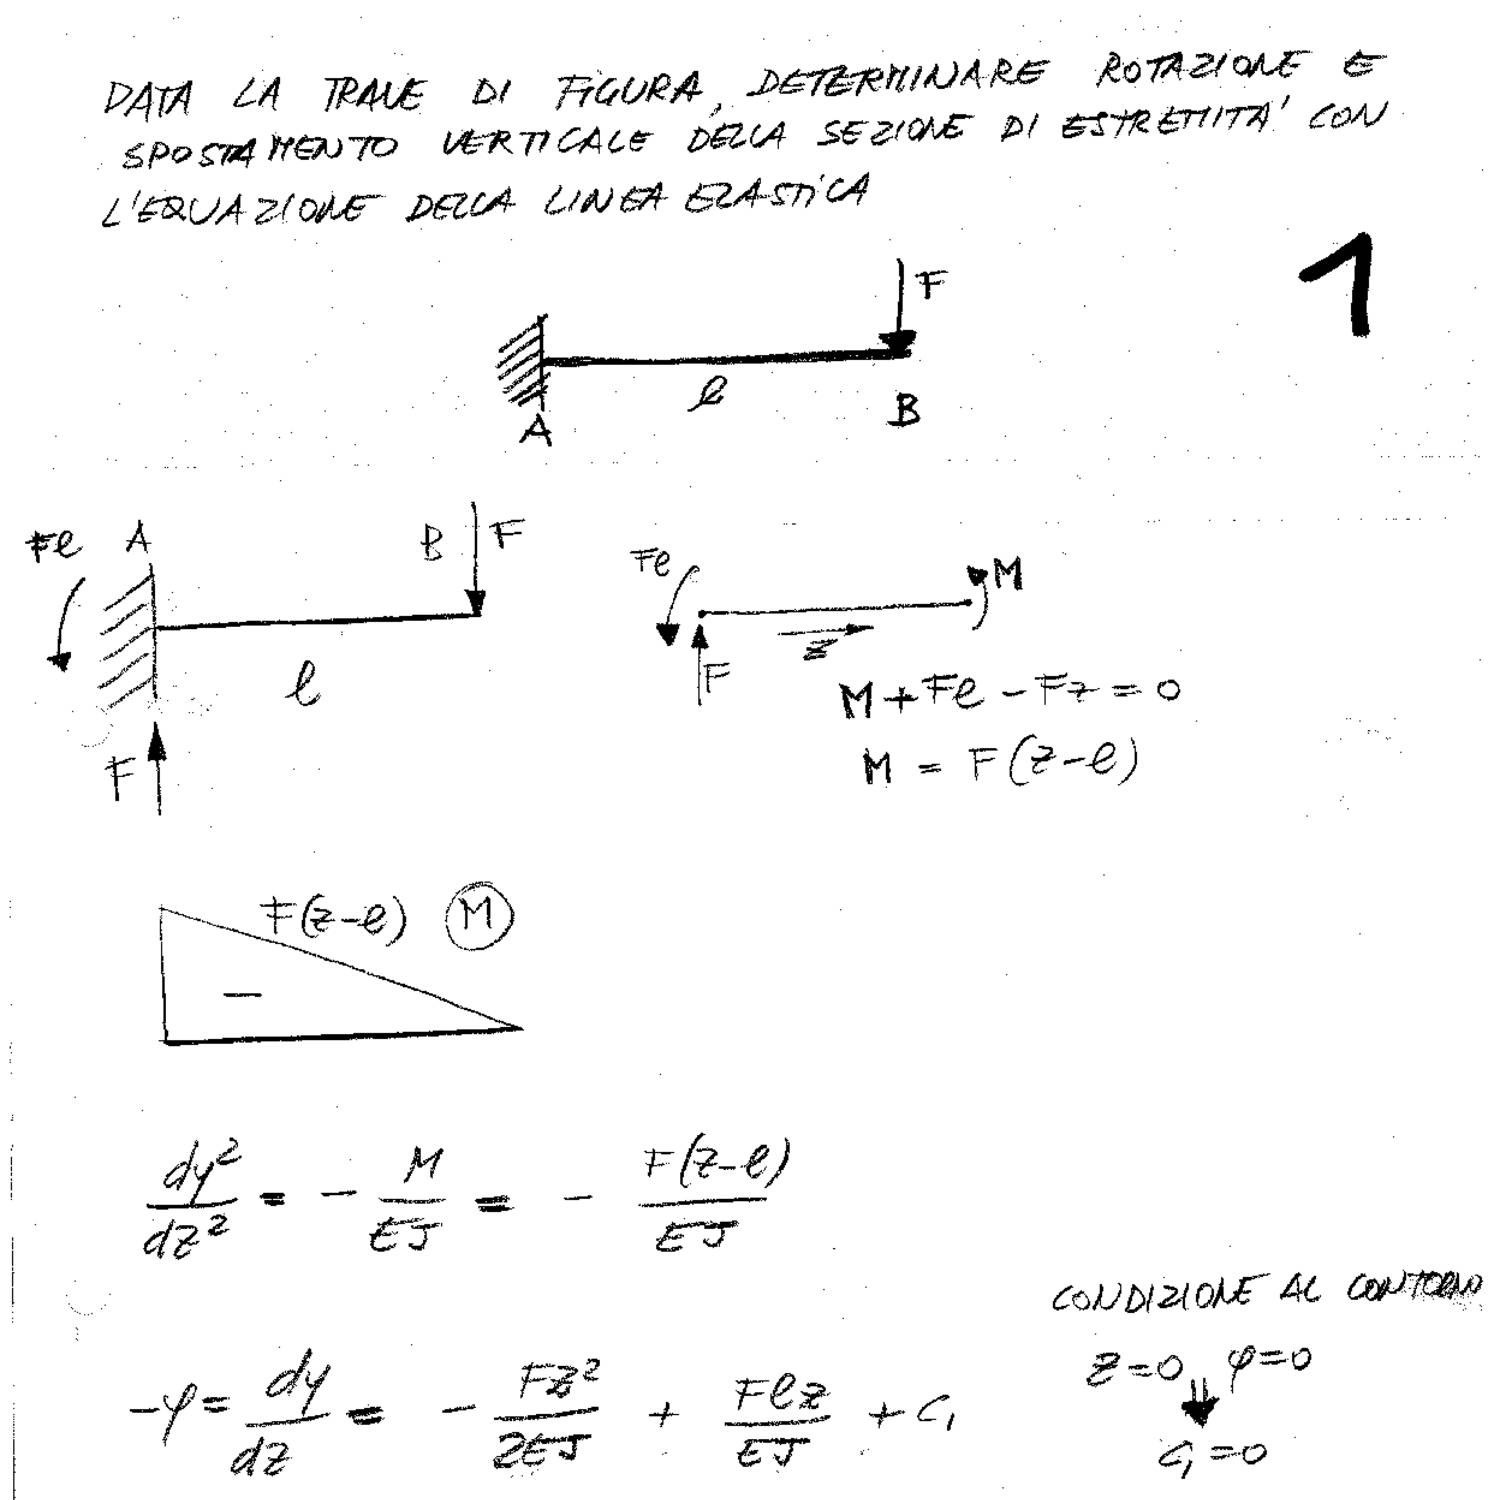 DATA LA TRAVE DI FIGURA, DETERMINARE ROTAZIONE E
SPOSTAMENTO VERTICALE DELLA SEZIONE DI ESTREMITA' CON
L'EQUAZIONE DELLA LINEA ELASTICA
1
F
A
l
B
Fl A B F
l
F
Fl M
z
F
M + Fl - Fz = 0
M = F(z-l)
F(z-l) M
-
dy²/dz² = - M/EJ = - F(z-l)/EJ
CONDIZIONE AL CONTORNO
z=0 φ=0
⇓
-φ = dy/dz = - Fz²/2EJ + Flz/EJ + C₁
C₁=0